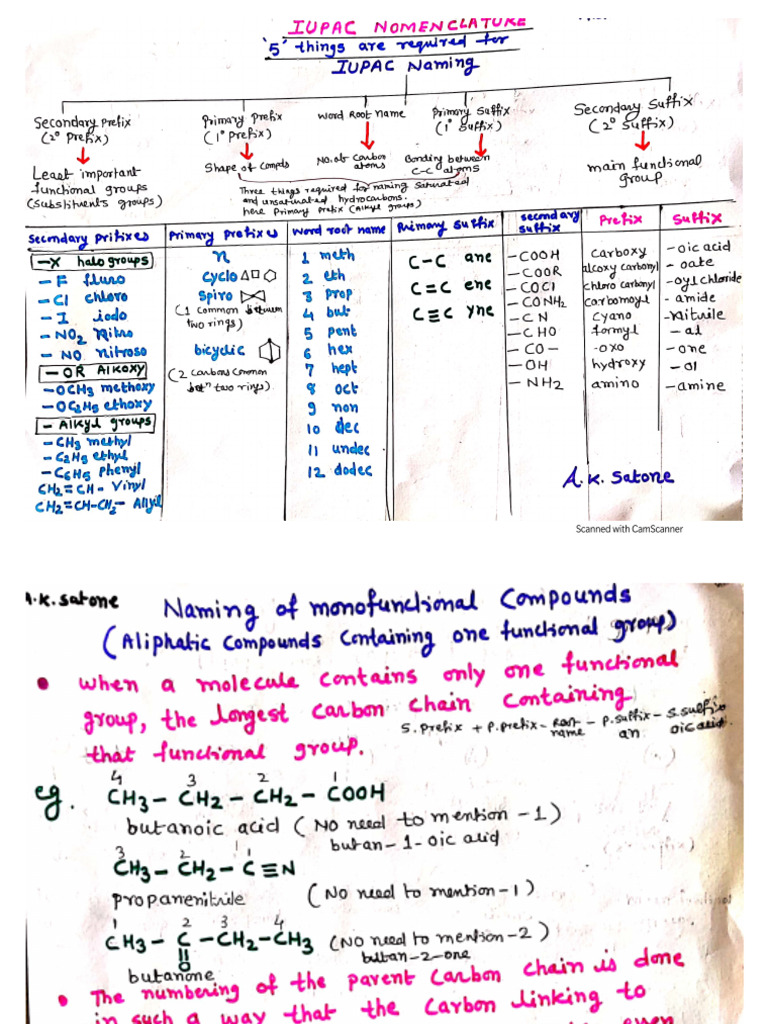 IUPAC NOMENCLATURE
'5' things are required for
IUPAC Naming
Secondary Prefix
(2° Prefix)
Primary Prefix
(1° Prefix)
Word Root Name
Primary Suffix
(1° Suffix)
Secondary Suffix
(2° Suffix)
Least important
functional groups
(substituents groups)
Shape of Compds
No. of Carbon
atoms
Bonding between
C-C atoms
main functional
group
Three things required for naming Saturated
and unsaturated hydrocarbons.
here Primary prefix (Alkyl groups)
Secondary Prifixes
-X halo groups
-F fluro
-Cl chloro
-I iodo
-NO2 Nitro
-NO nitroso
-OR Alkoxy
-OCH3 methoxy
-OC2H5 ethoxy
- Alkyl groups
-CH3 methyl
-C2H5 ethyl
-C6H5 Phenyl
CH2=CH- Vinyl
CH2=CH-CH2- Allyl
Primary prefixes
n
cyclo
spiro
(1 common between
two rings)
bicyclic
(2 carbons common
betn two rings)
Word root name
1 meth
2 eth
3 prop
4 but
5 pent
6 hex
7 hept
8 oct
9 non
10 dec
11 undec
12 dodec
Primary Suffix
C-C ane
C=C ene
C≡C yne
secondary
suffix
Prefix
Suffix
-COOH carboxy -oic acid
-COOR alcoxy carbonyl -oate
-COCl chloro carbonyl -oyl chloride
-CONH2 carbomoyl -amide
-CN cyano -nitrile
-CHO formyl -al
-CO- -oxo -one
-OH hydroxy -ol
-NH2 amino -amine
A.K. Satone
Scanned with CamScanner
A.K. Satone
Naming of monofunctional Compounds
(Aliphatic Compounds Containing one functional group)
• When a molecule contains only one functional
group, the longest carbon chain containing
that functional group.
S.Prefix + P.prefix - Root name - P.suffix - S.suffix
an oic acid.
eg.
4 3 2 1
CH3 - CH2 - CH2 - COOH
butanoic acid (No need to mention -1)
butan-1-oic acid
3 2 1
CH3 - CH2 - C≡N
propanenitrile (No need to mention -1)
1 2 3 4
CH3 - C - CH2 - CH3 (No need to mention -2)
O
butan-2-one
butanone
• The numbering of the parent carbon chain is done
in such a way that the Carbon linking to